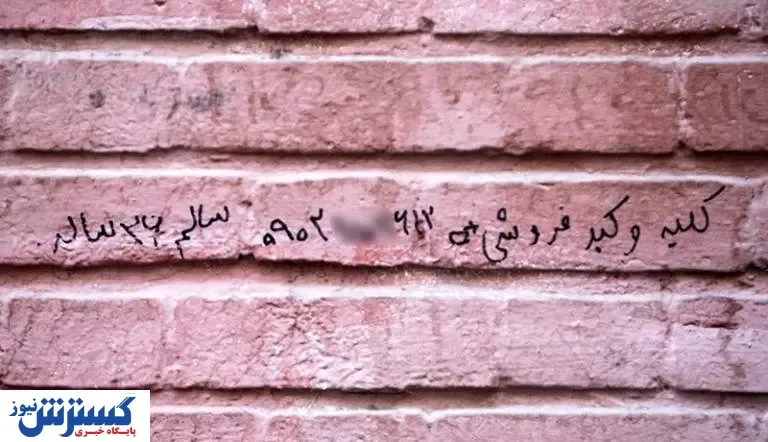 کلیه و کبد فروشی
۰۹۰۲ ۶۱۲
سالم ساله
گسترش نیوز
پایگاه خبری